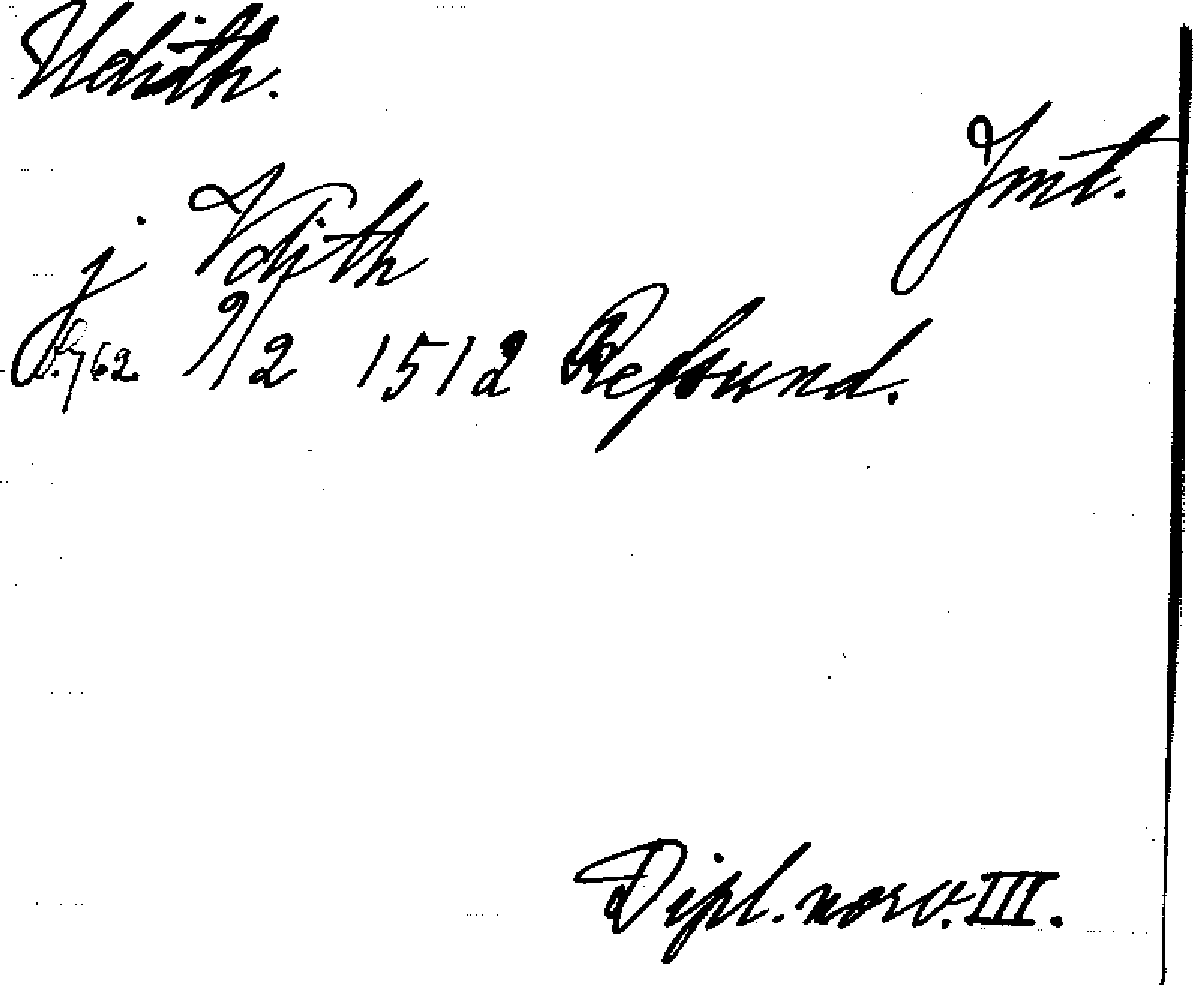 Udith.
Jmt.
j Vdith
S. 762 9/2 1512 Refsund.
Dipl. norv. III.